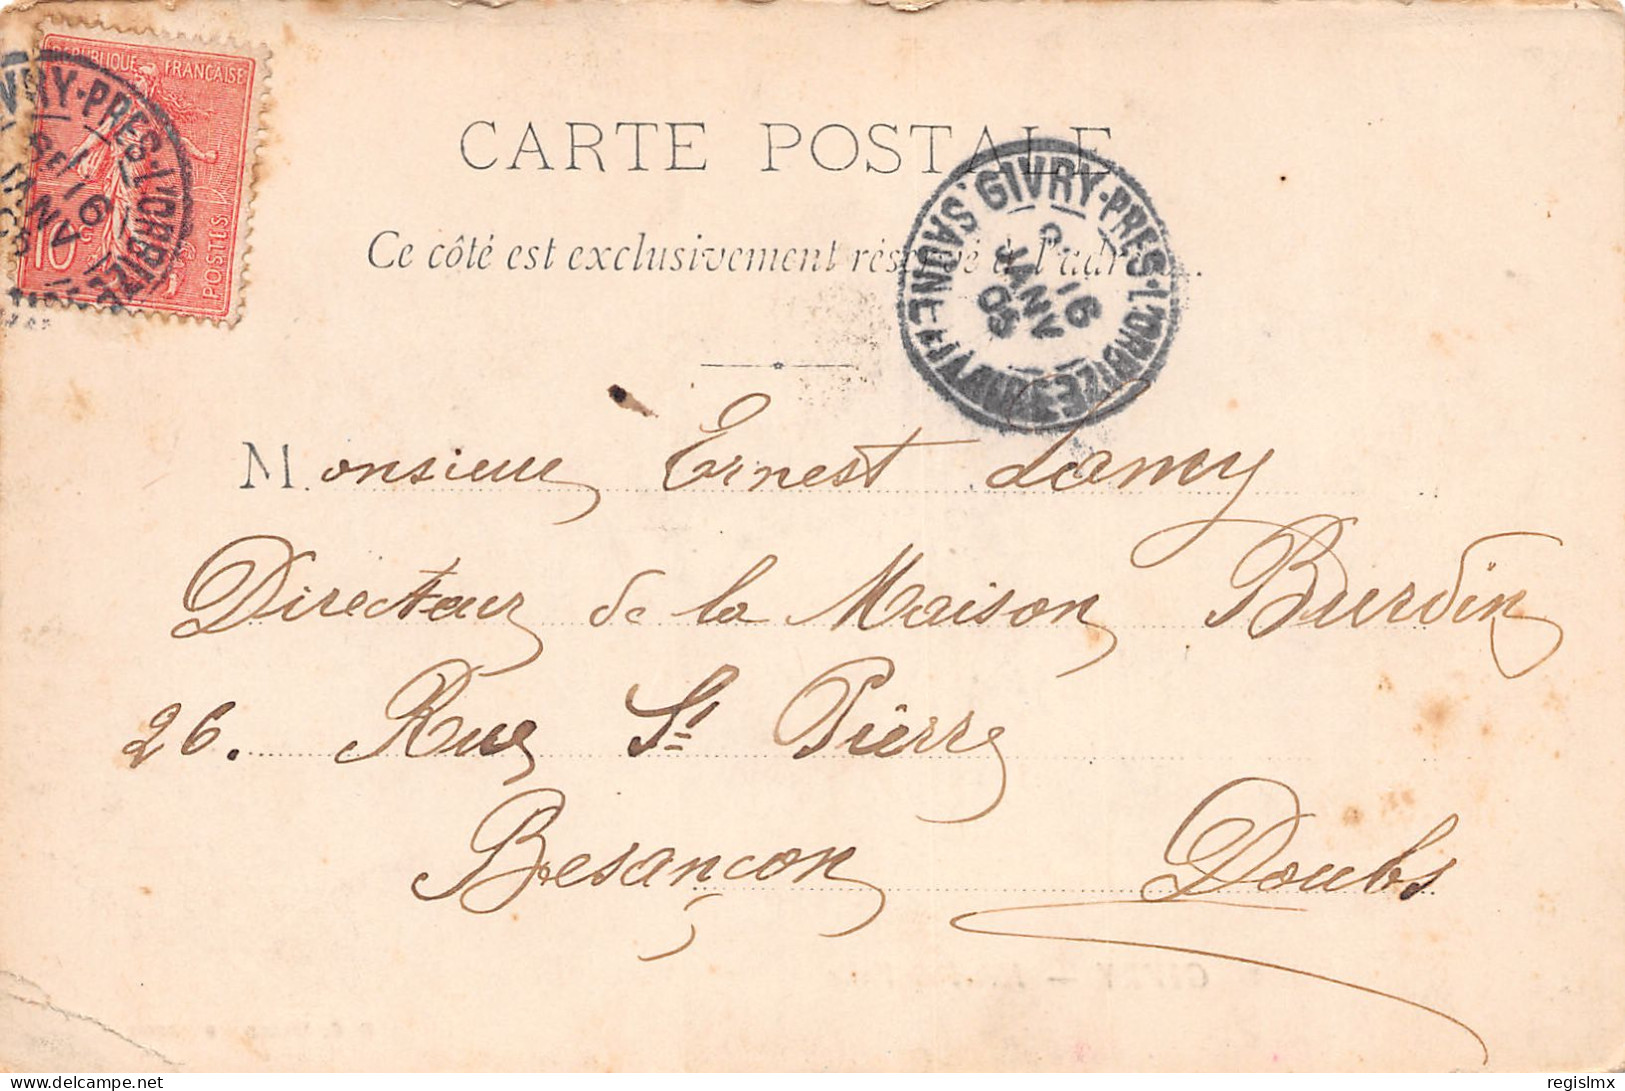 RÉPUBLIQUE FRANÇAISE
10
POSTES
GIVRY-PRES-L'ORBIZE
16
JANV
CARTE POSTALE
Ce côté est exclusivement réservé à l'adresse.
GIVRY-PRES-L'ORBIZE
SAONE-
16
JANV
05
Monsieur Ernest Lamy
Directeur de la Maison Burdin
26. Rue St Pierre
Besançon Doubs
GIVRY —
regislmx